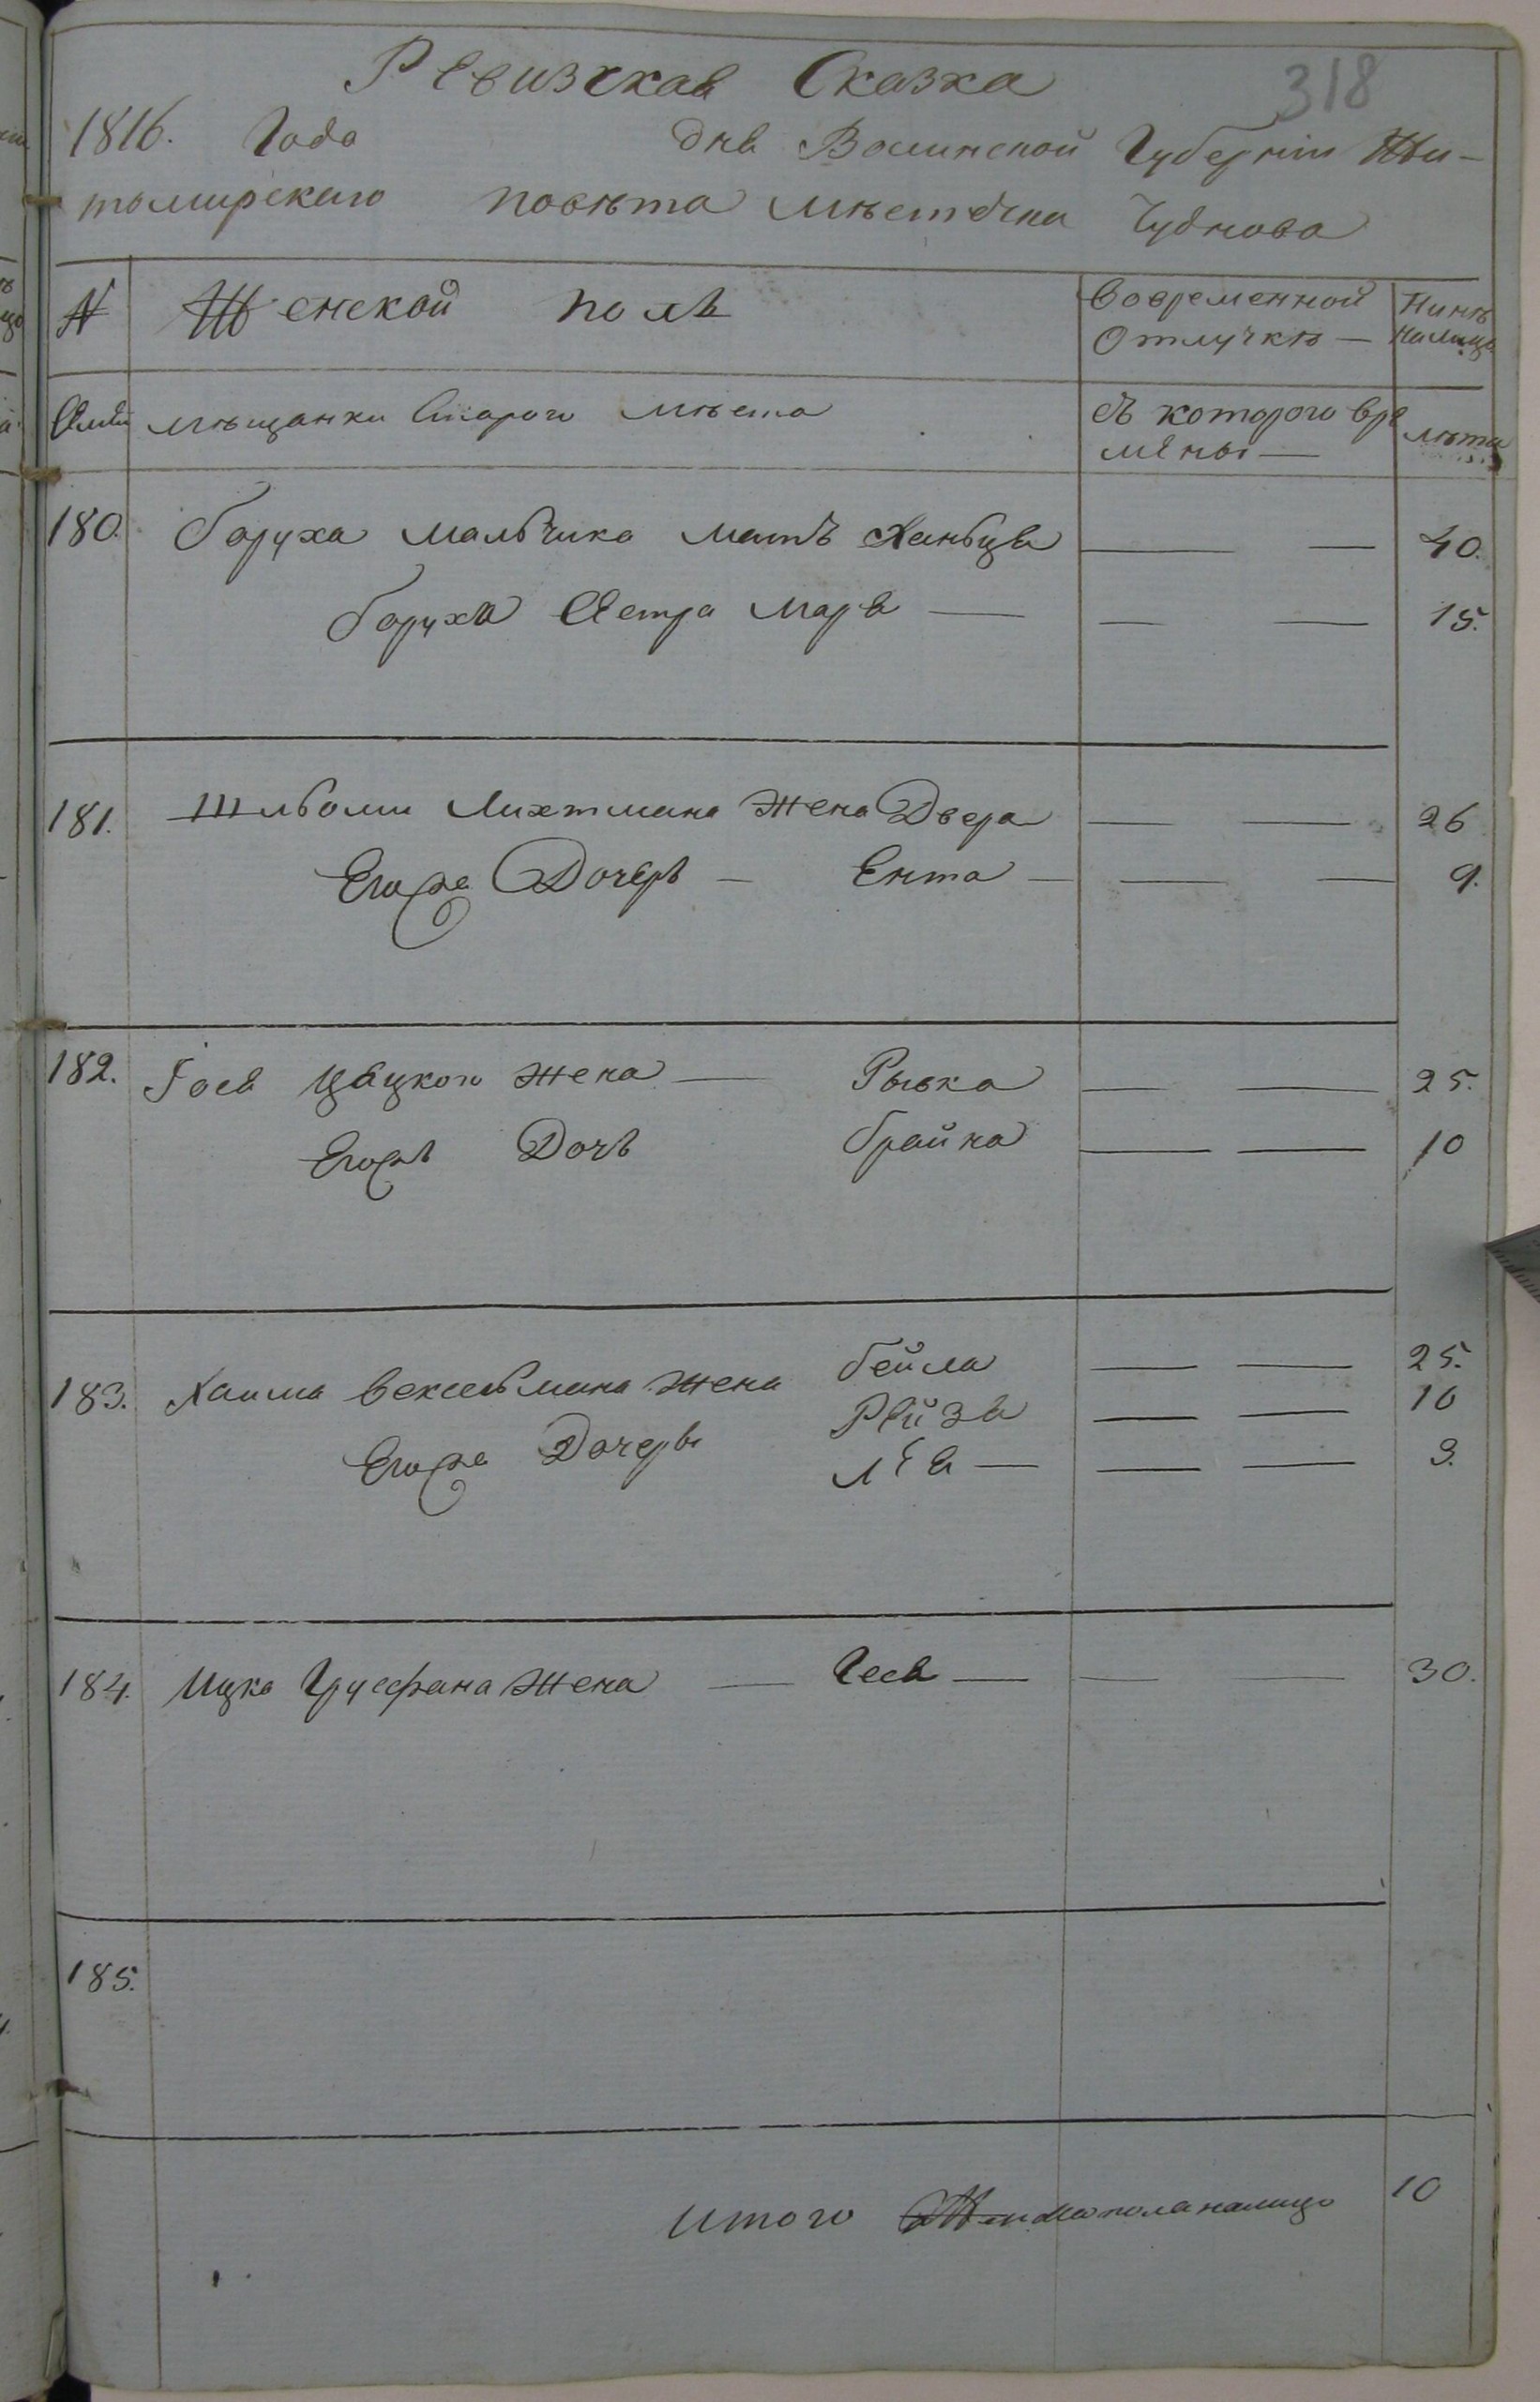 Ревизская Сказка 318
1816. Года дня Волинской Губернии Жи-
томирскаго повѣта мѣстечка Чуднова
N Женской полъ Вовременной Нинѣ
Отлучкѣ — налицо
мѣщанки Старого мѣста съ которого вре
мены — лѣта
180. Боруха Мальчика мать Ханьця — — 40.
Боруха Сестра Маря — — — 15.
181. Шльоми Лихтмана жена Двера — — 26
Егоже Дочерь — Ента — — — 9.
182. Іося Цацкого жена — Рывка — — 25.
Егожъ Дочь брайна — — 10
183. Хаима Вексельмана жена бейла — — 25.
Рейзя — — 10
Егоже Дочеры Лея — — — 3.
184. Ицка Грусфана жена — Геся — — — 30.
185.
Итого пола налицо 10